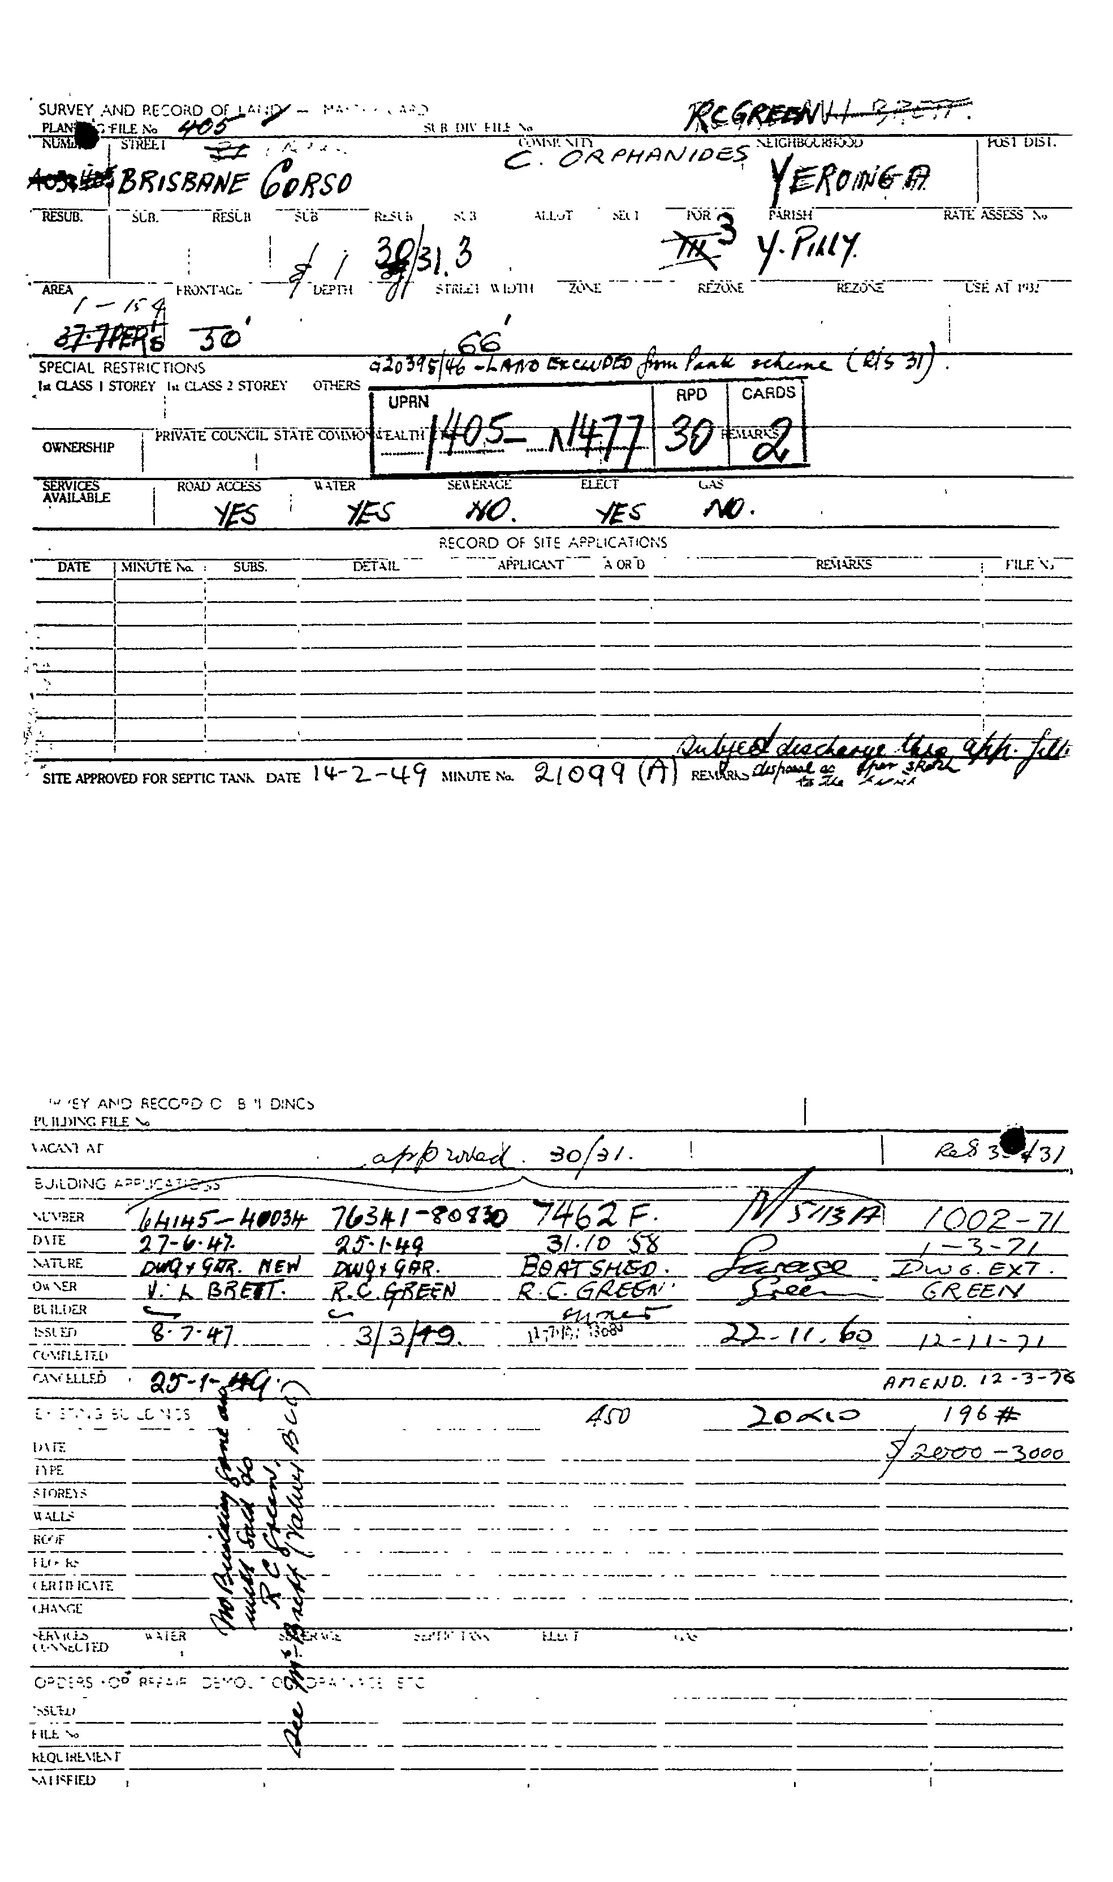 SURVEY AND RECORD OF LAND — MASTER CARD
RCGREEN V.L BRETT.
PLANNING FILE No 405 SUB DIV FILE No
NUMBER STREET COMMUNITY NEIGHBOURHOOD POST DIST.
C. ORPHANIDES
BRISBANE CORSO YERONGA
RESUB. SUB. RESUB SUB RESUB SUB ALLOT SECT POR PARISH RATE ASSESS No
1 30/31. 3 3 Y. PILLY.
AREA FRONTAGE DEPTH STREET WIDTH ZONE REZONE REZONE USE AT 1932
1 - 15.4
37.7 PERS 50' 66'
SPECIAL RESTRICTIONS 20395/46 - LAND EXCLUDED from Park scheme (R/S 31).
1st CLASS 1 STOREY 1st CLASS 2 STOREY OTHERS
UPRN RPD CARDS
1405- N1477 30 2
OWNERSHIP PRIVATE COUNCIL STATE COMMONWEALTH REMARKS
SERVICES AVAILABLE ROAD ACCESS WATER SEWERAGE ELECT GAS
YES YES NO. YES NO.
RECORD OF SITE APPLICATIONS
DATE MINUTE No. SUBS. DETAIL APPLICANT A OR D REMARKS FILE No
Subject discharge thro app. filt
SITE APPROVED FOR SEPTIC TANK DATE 14-2-49 MINUTE No. 21099 (A) REMARKS disposal as per sketch
to the
SURVEY AND RECORD OF BUILDINGS
BUILDING FILE No
VACANT AT approved. 30/31. Res 31
BUILDING APPLICATIONS
NUMBER 64145-40034 76341-80830 7462 F. M 5113A 1002-71
DATE 27-6-47. 25-1-49 31.10 58 1-3-71
NATURE DWG & GAR. NEW DWG & GAR. BOATSHED. Garage DWG. EXT.
OWNER V. L BRETT. R.C. GREEN R.C. GREEN. Green GREEN
BUILDER owner
ISSUED 8-7-47 3/3/49. 22-11.60 12-11-71
COMPLETED
CANCELLED 25-1-49. AMEND. 12-3-76
EXISTING BUILDINGS 450 20x10 196 #
DATE $2000-3000
TYPE
STOREYS
WALLS
ROOF
FLOORS
CERTIFICATE
CHANGE
SERVICES CONNECTED WATER SEWERAGE SEPTIC TANK ELECT GAS
ORDERS FOR REPAIR DEMOLITION DRAINAGE ETC
ISSUED
FILE No
REQUIREMENT
SATISFIED
No Building done and
until sold to
R C Green.
See Mr Brett (Valuer BCC)